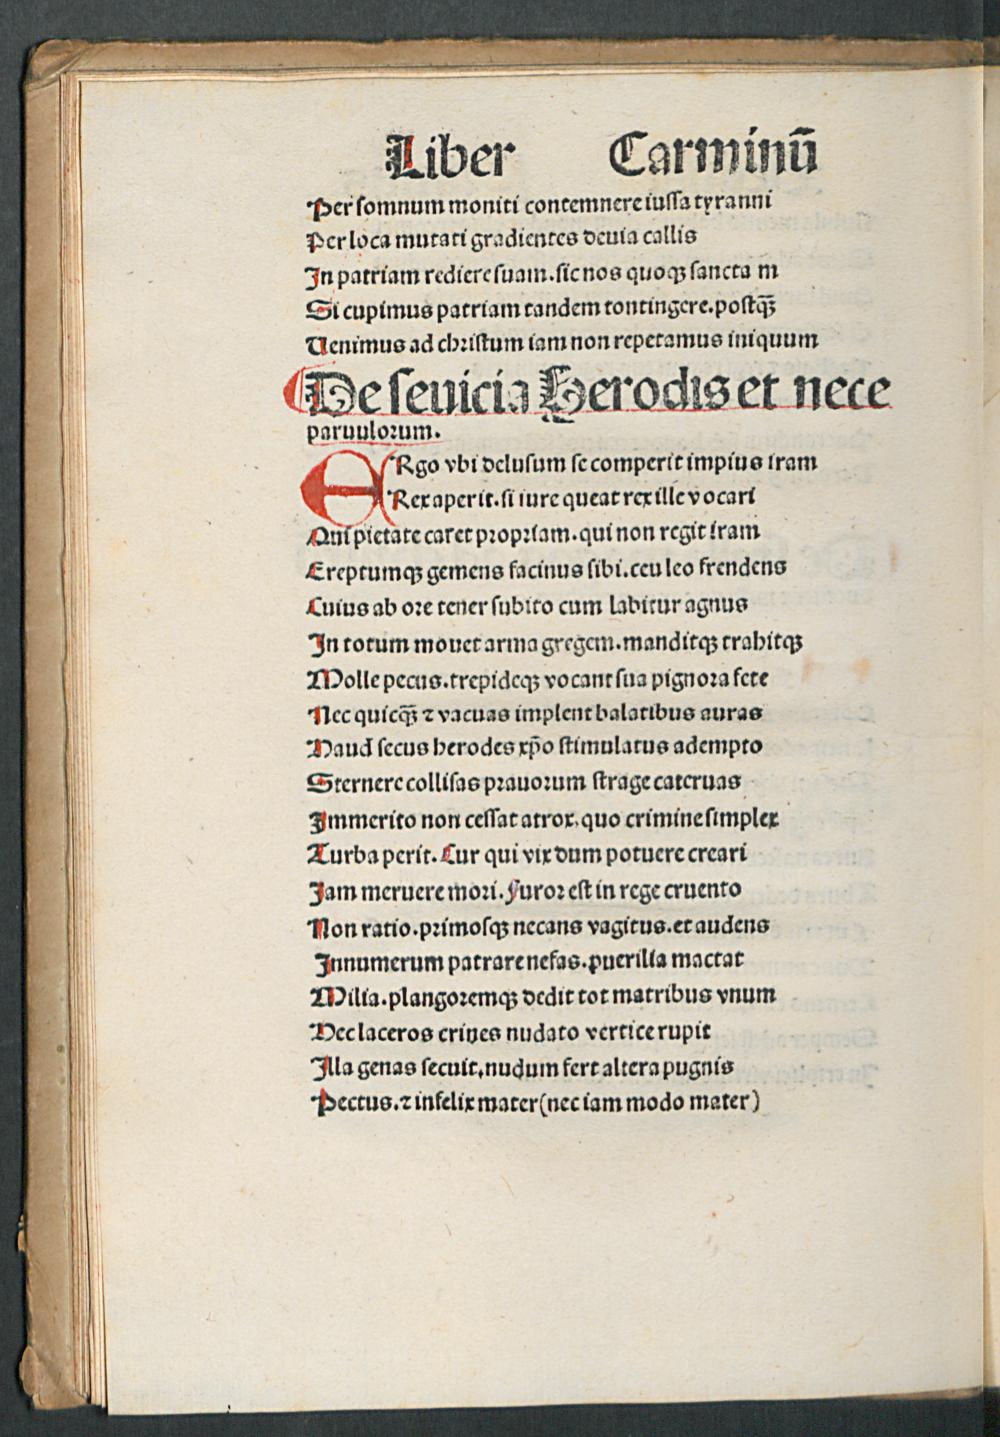 Liber Carminū
Per somnum moniti contemnere iussa tyranni
Per loca mutati gradientes deuia callis
In patriam rediere suam. sic nos quoqꝫ sancta m
Si cupimus patriam tandem tontingere. postqꝫ̄
Uenimus ad christum iam non repetamus iniquum
De seuicia Herodis et nece
paruulorum.
ERgo vbi delusum se comperit impius iram
Rex aperit. si iure queat rex ille vocari
Qui pietate caret propriam. qui non regit iram
Ereptumqꝫ gemens facinus sibi. ceu leo frendens
Cuius ab ore tener subito cum labitur agnus
In totum mouet arma gregem. manditqꝫ trahitqꝫ
Molle pecus. trepideqꝫ vocant sua pignora fete
Nec quicqꝫ̄ ⁊ vacuas implent balatibus auras
Haud secus herodes xp̄o stimulatus adempto
Sternere collisas prauorum strage cateruas
Immerito non cessat atrox. quo crimine simplex
Turba perit. Cur qui vix dum potuere creari
Jam meruere mori. Furor est in rege cruento
Non ratio. primosqꝫ necans vagitus. et audens
Innumerum patrare nefas. puerilia mactat
Milia. plangoremqꝫ dedit tot matribus vnum
Hec laceros crines nudato vertice rupit
Illa genas secuit, nudum fert altera pugnis
Pectus. ⁊ infelix mater (nec iam modo mater)